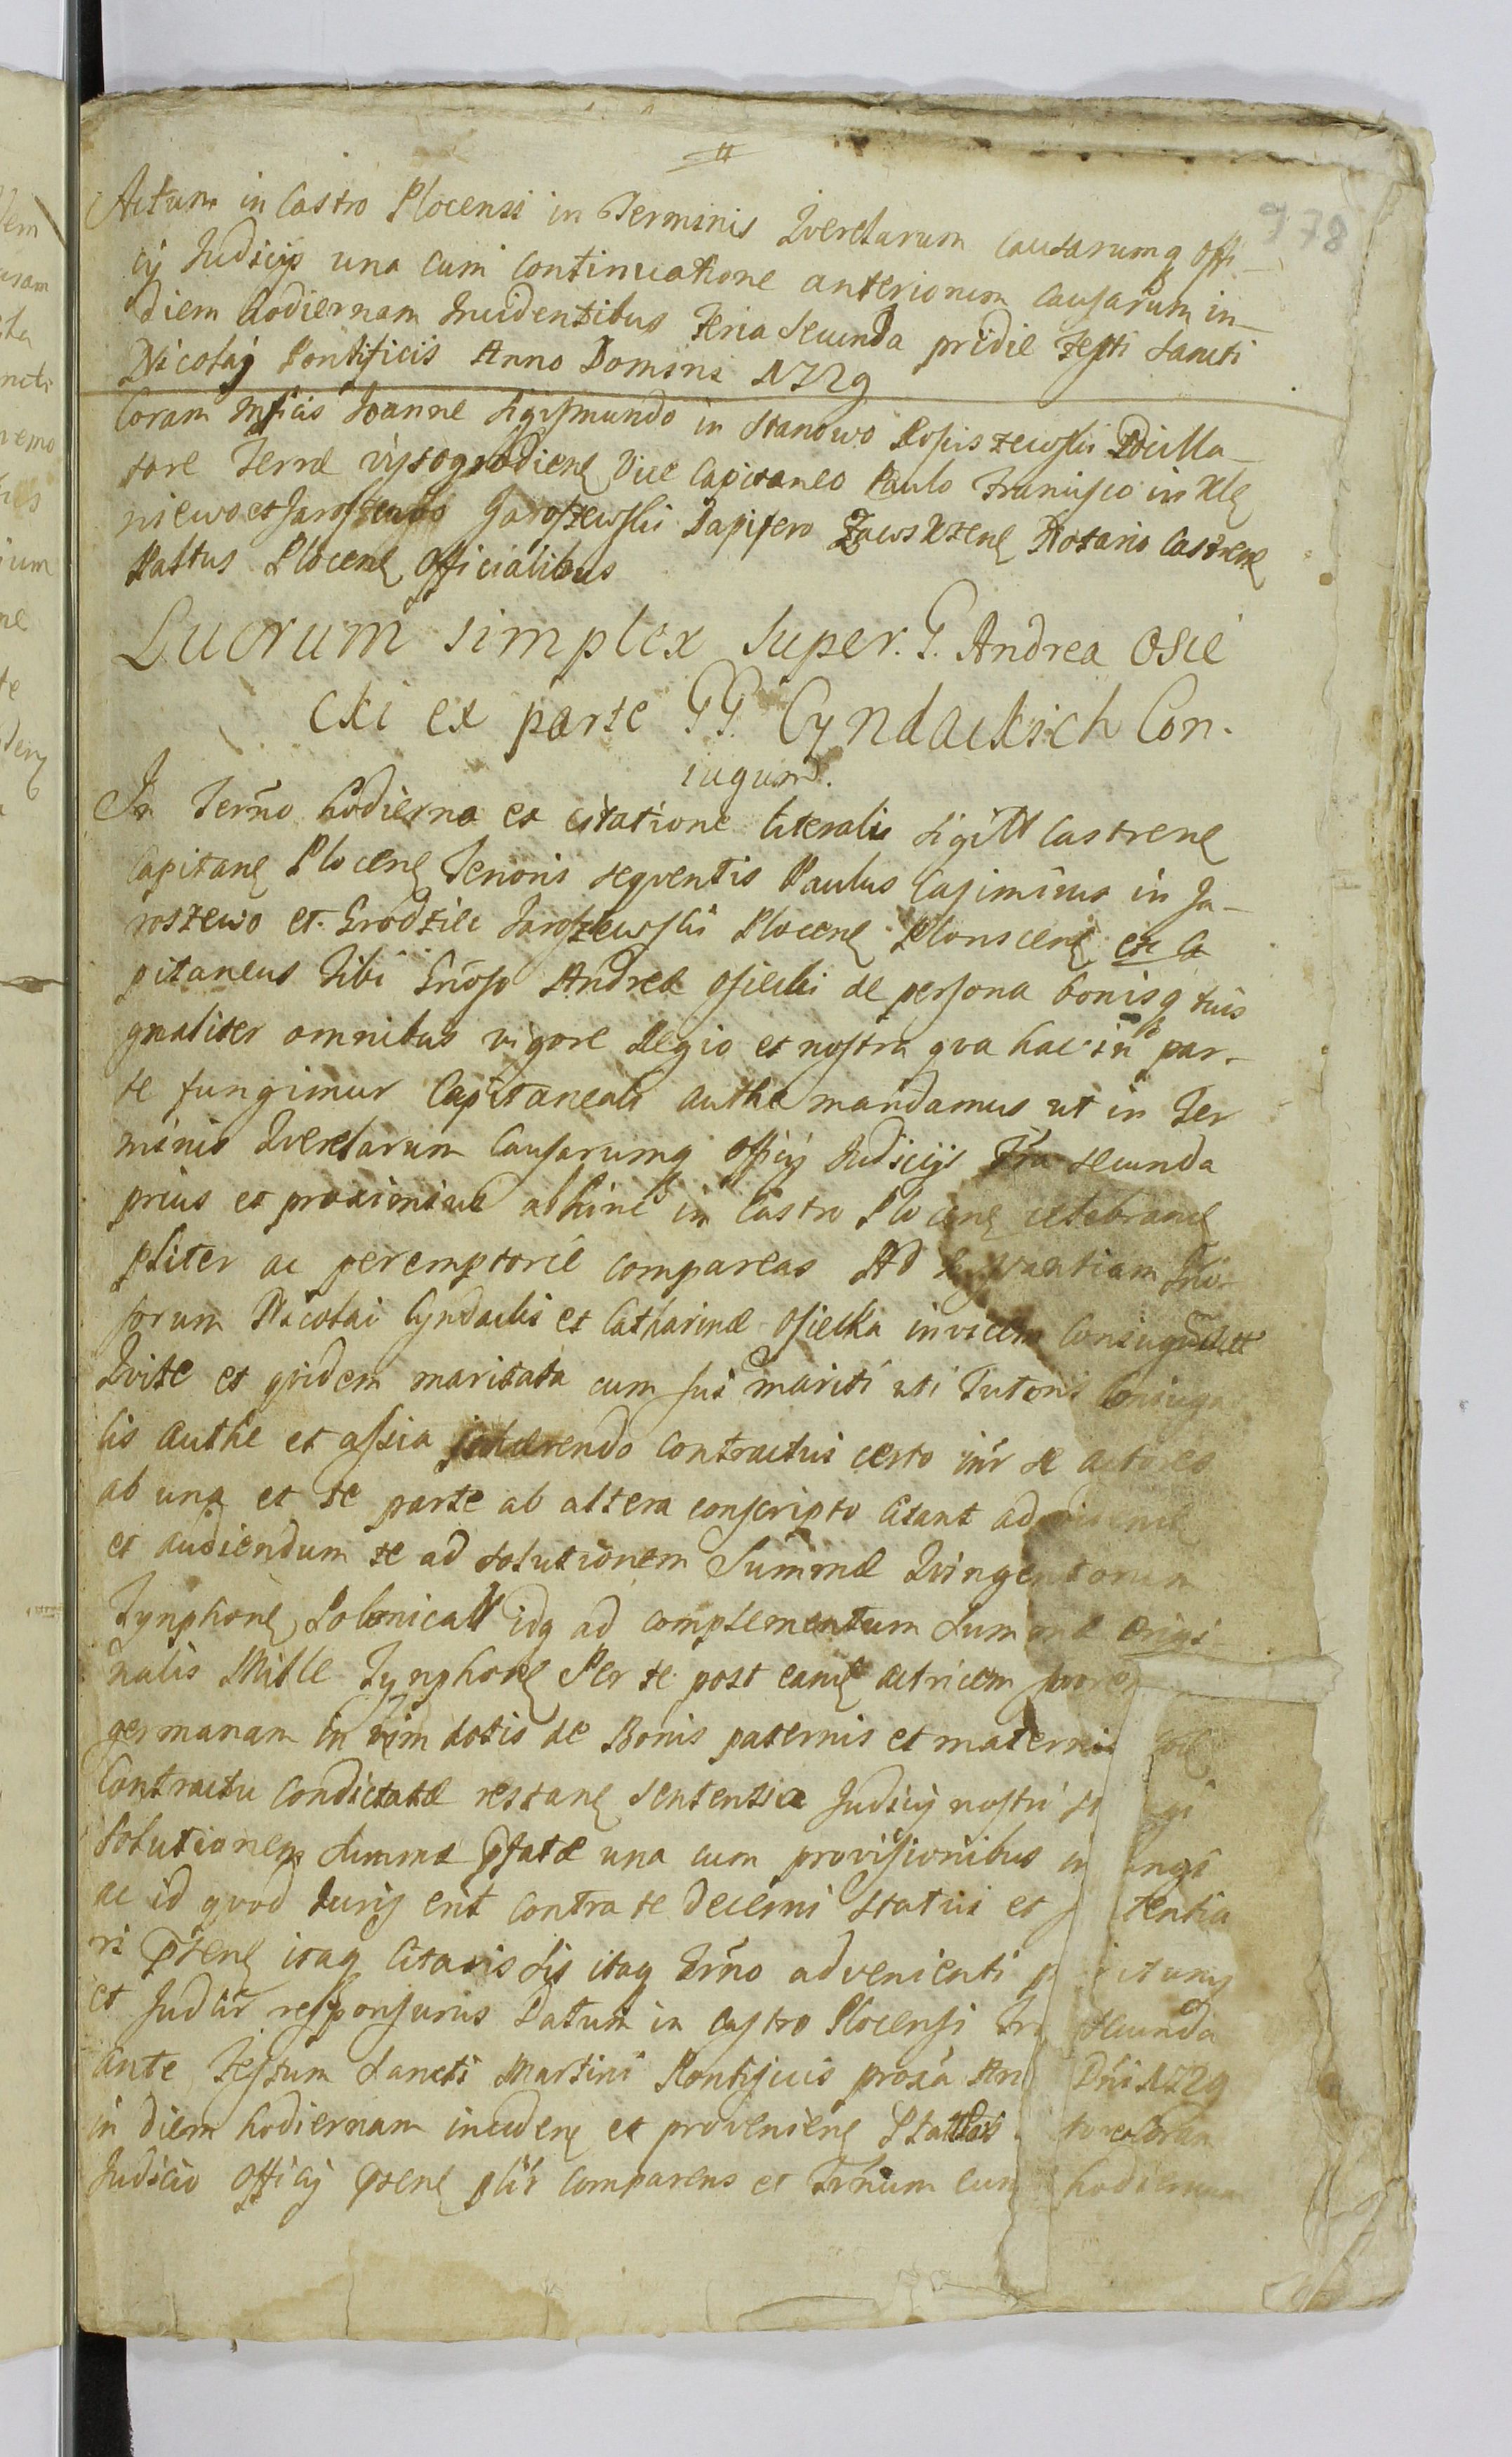 978
Actum in Castro Plocensi in Terminis Qverelarum causarumq Offi-
cij Judicijs una cum continuatione anteriorum causarum in-
diem hodiernam Incidentibus Feria Secunda pridie Festi Sancti
Nicolaj Pontificis Anno Domini 1729
Coram Mficis Joanne Sigismundo in Stanowo
tore Terræ Vice Capitaneo Paulo Francisco in
niewo et Jaroszewo Jaroszewski Dapifero Zawskrzen Notario Castren
Plocen Officialibus
Lucrum simplex super. G. Andrea Osie
cki ex parte GG. Cyndackich Con.
iugum.
In Termo hodierno ex citatione literalis sigill Castrene
Capitane Plocene Tenoris seqventis Paulus Casimirus in Ja-
roszewo et Jaroszewski Plocene Plonscene etc Ca
pitaneus Tibi Gnoso Andreæ Osiecki de persona bonisq tuis
gnaliter omnibus vigore Regio et nostra qva hac in par-
te fungimur Capitaneali authe mandamus ut in Ter
minis Qverelarum Causarumq Officij Judicijs Fria secunda
prius et proxime abhinc in Castro Plocene celebrand
pliter ac peremptorie compareas Ad
sorum Nicolai Cyndacki et Catharinæ Osiecka invicem
et qvidem maritata cum sui mariti uti Tutoris Coniuga
lis Authe et assia contractui certo intr se actores
ab una et te parte ab altera conscripto Citant ad
et audiendum te ad solutionem Summæ Qvingentorum
Tynphone Polonicall idq ad complementum Summæ origi
nalis Mille Tynphone Per te post eand actricem
germanam in vim dotis de Bonis paternis et maternis
Contractu condictatæ restane Sententia Judicij nostri
Solutionem Summæ pfatæ una cum provisionibus
ac id qvod Juris erit contra te decerni statui et tentia
ri psene itaq Citaris Sis itaq Trmo advenienti
et Judlir responsurus Datum in Castro Plocensi Fra Secunda
ante Festum Sancti Martini Pontificis proxa An Dni 1729
in diem hodiernam incidene et provenien coram
Judicio Officij psene plir comparens et Trnum eun hodiernum